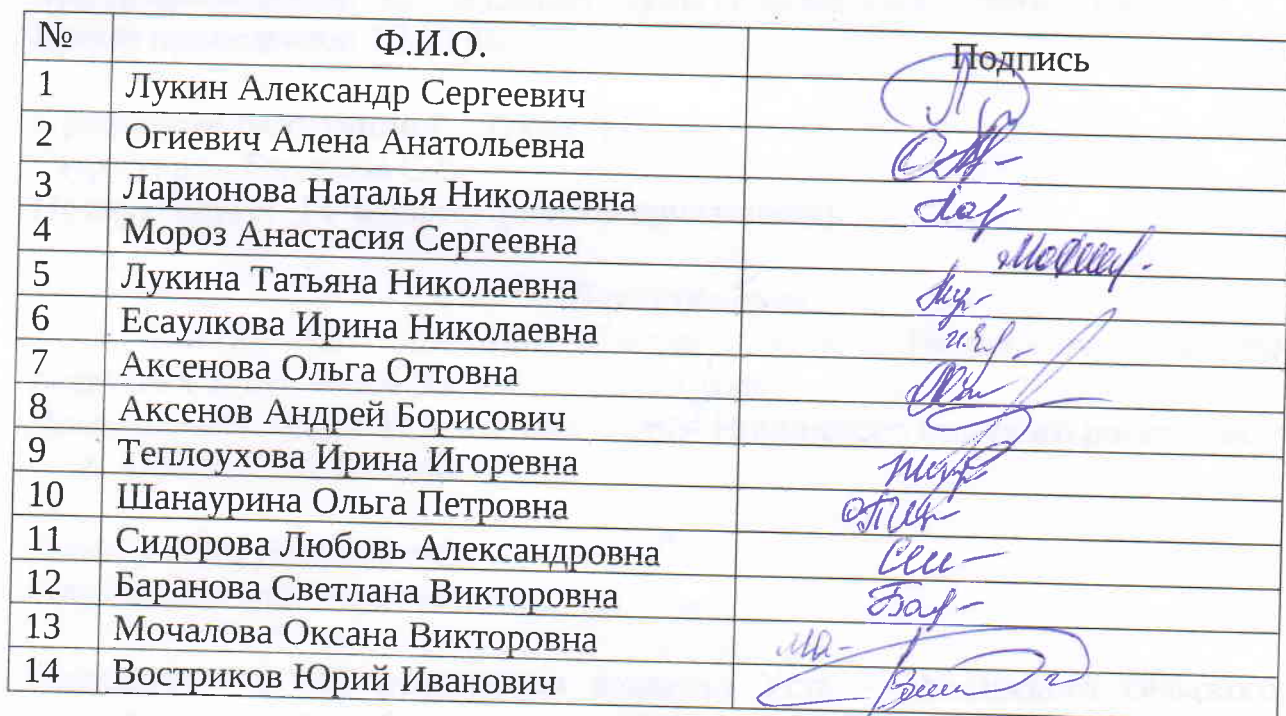 № Ф.И.О. Подпись
1 Лукин Александр Сергеевич
2 Огиевич Алена Анатольевна
3 Ларионова Наталья Николаевна Лар
4 Мороз Анастасия Сергеевна
5 Лукина Татьяна Николаевна
6 Есаулкова Ирина Николаевна
7 Аксенова Ольга Оттовна
8 Аксенов Андрей Борисович
9 Теплоухова Ирина Игоревна
10 Шанаурина Ольга Петровна
11 Сидорова Любовь Александровна
12 Баранова Светлана Викторовна Бар-
13 Мочалова Оксана Викторовна
14 Востриков Юрий Иванович